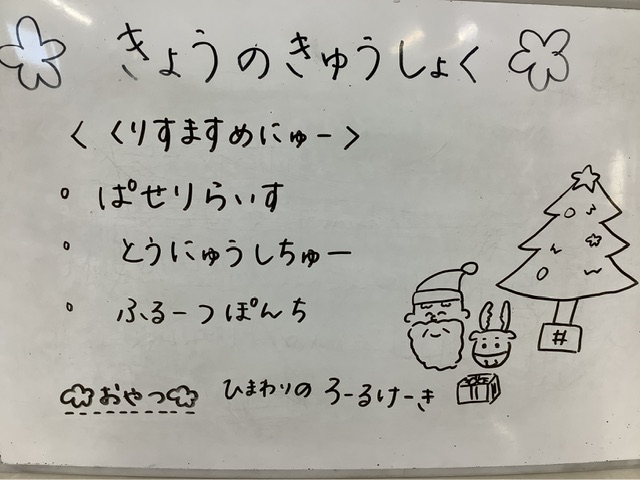 きょうのきゅうしょく
< くりすますめにゅー >
。ぱせりらいす
。とうにゅうしちゅー
。ふるーつぽんち
おやつ ひまわりの ろーるけーき